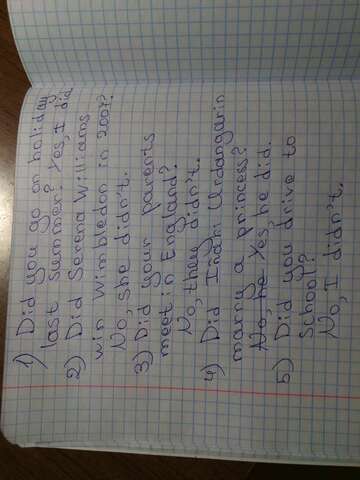 1) Did you go on holiday
last summer? Yes, I did
2) Did Serena Williams
win Wimbledon in 2007?
No, she didn't.
3) Did your parents
meet in England?
No, they didn't.
4) Did Inaki Urdangarin
marry a princess?
No, he Yes, he did.
5) Did you drive to
school?
No, I didn't.